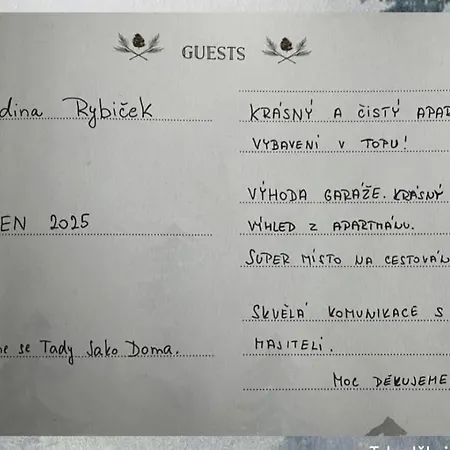 GUESTS
dina Rybiček
EN 2025
me se Tady Jako Doma.
KRÁSNÝ A ČISTÝ APAR
VYBAVENÍ V TOPU!
VÝHODA GARÁŽE. KRÁSNÝ
VÝHLED Z APARTMÁNU.
SUPER MÍSTO NA CESTOVÁN
SKVĚLÁ KOMUNIKACE S
MAJITELI.
MOC DĚKUJEME